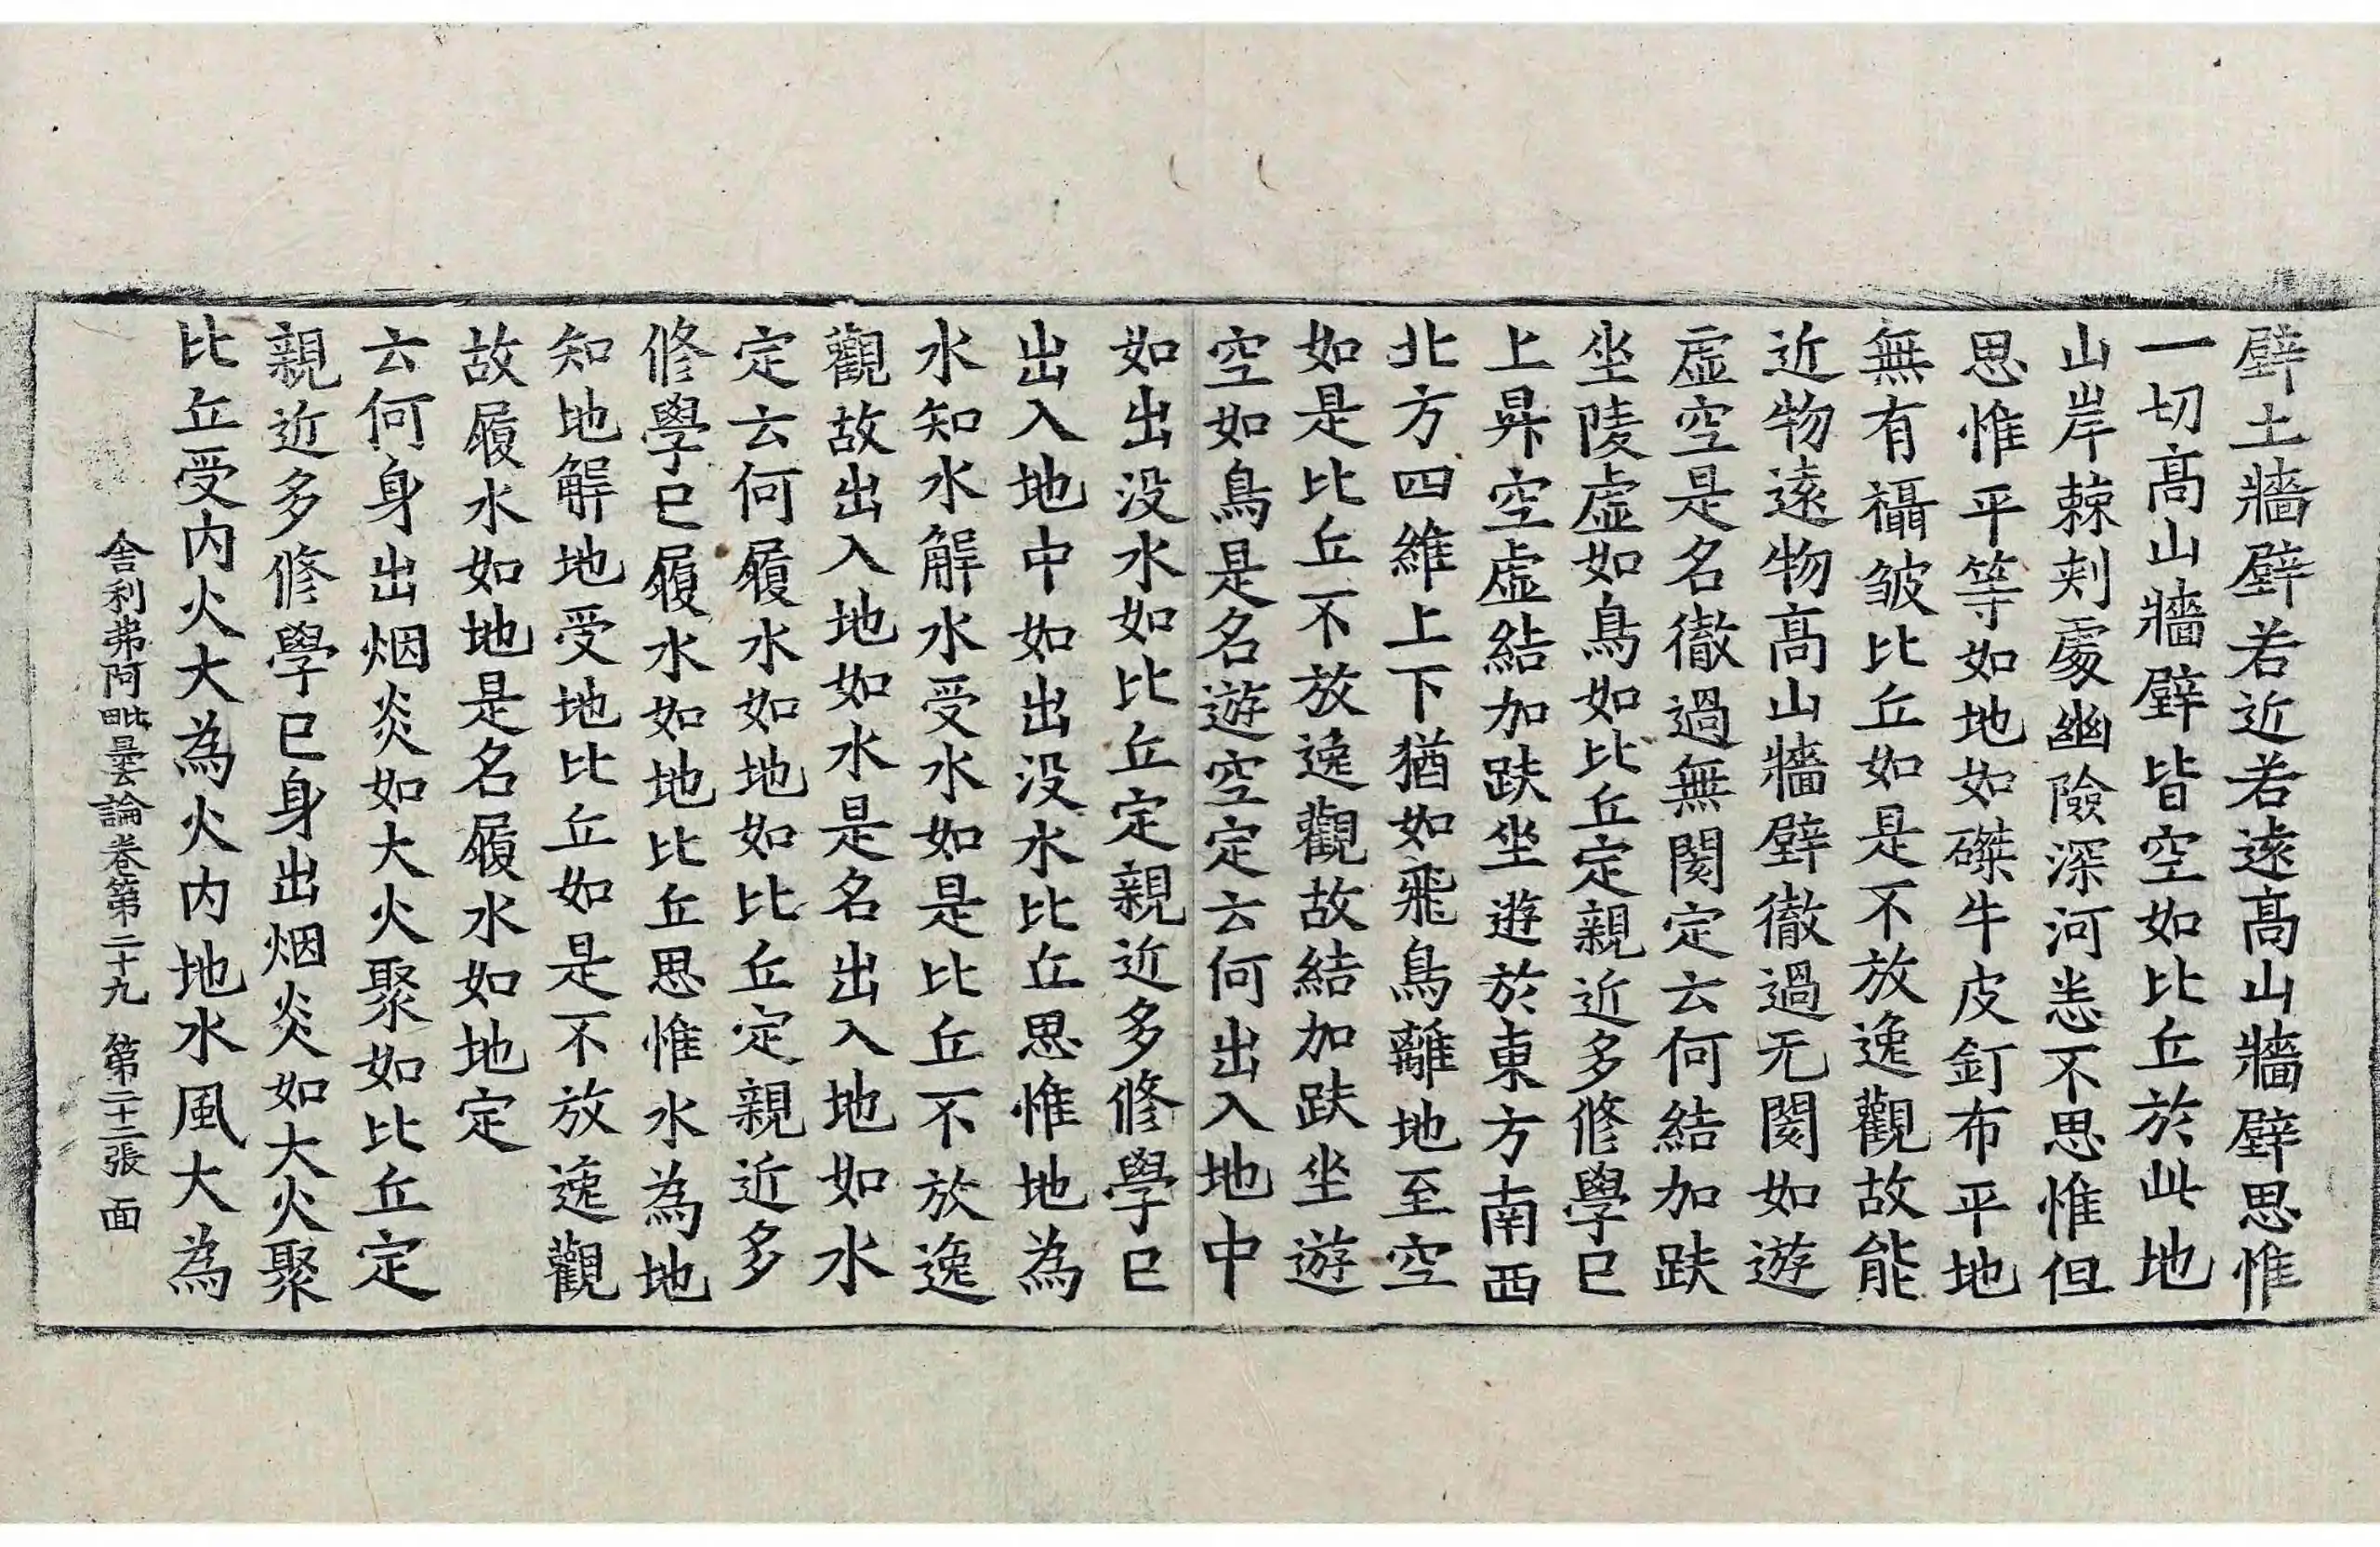 壁土牆壁若近若遠高山牆壁思惟
一切高山牆壁皆空如比丘於此地
山岸棘刾處幽險深河恙不思惟但
思惟平等如地如磔牛皮釘布平地
無有襵皱比丘如是不放逸觀故能
近物遠物高山牆壁徹過无閡如遊
虛空是名徹過無閡定云何結加趺
坐陵虛如鳥如比丘定親近多修學已
上昇空虛結加趺坐遊於東方南西
北方四維上下猶如飛鳥離地至空
如是比丘不放逸觀故結加趺坐遊
空如鳥是名遊空定云何出入地中
如出没水如比丘定親近多修學已
出入地中如出没水比丘思惟地為
水知水解水受水如是比丘不放逸
觀故出入地如水是名出入地如水
定云何履水如地如比丘定親近多
修學已履水如地比丘思惟水為地
知地解地受地比丘如是不放逸觀
故履水如地是名履水如地定
云何身出烟炎如大火聚如比丘定
親近多修學已身出烟炎如大火聚
比丘受内火大為火内地水風大為
舍利弗阿毗曇論卷第二十九 第二十二張 面